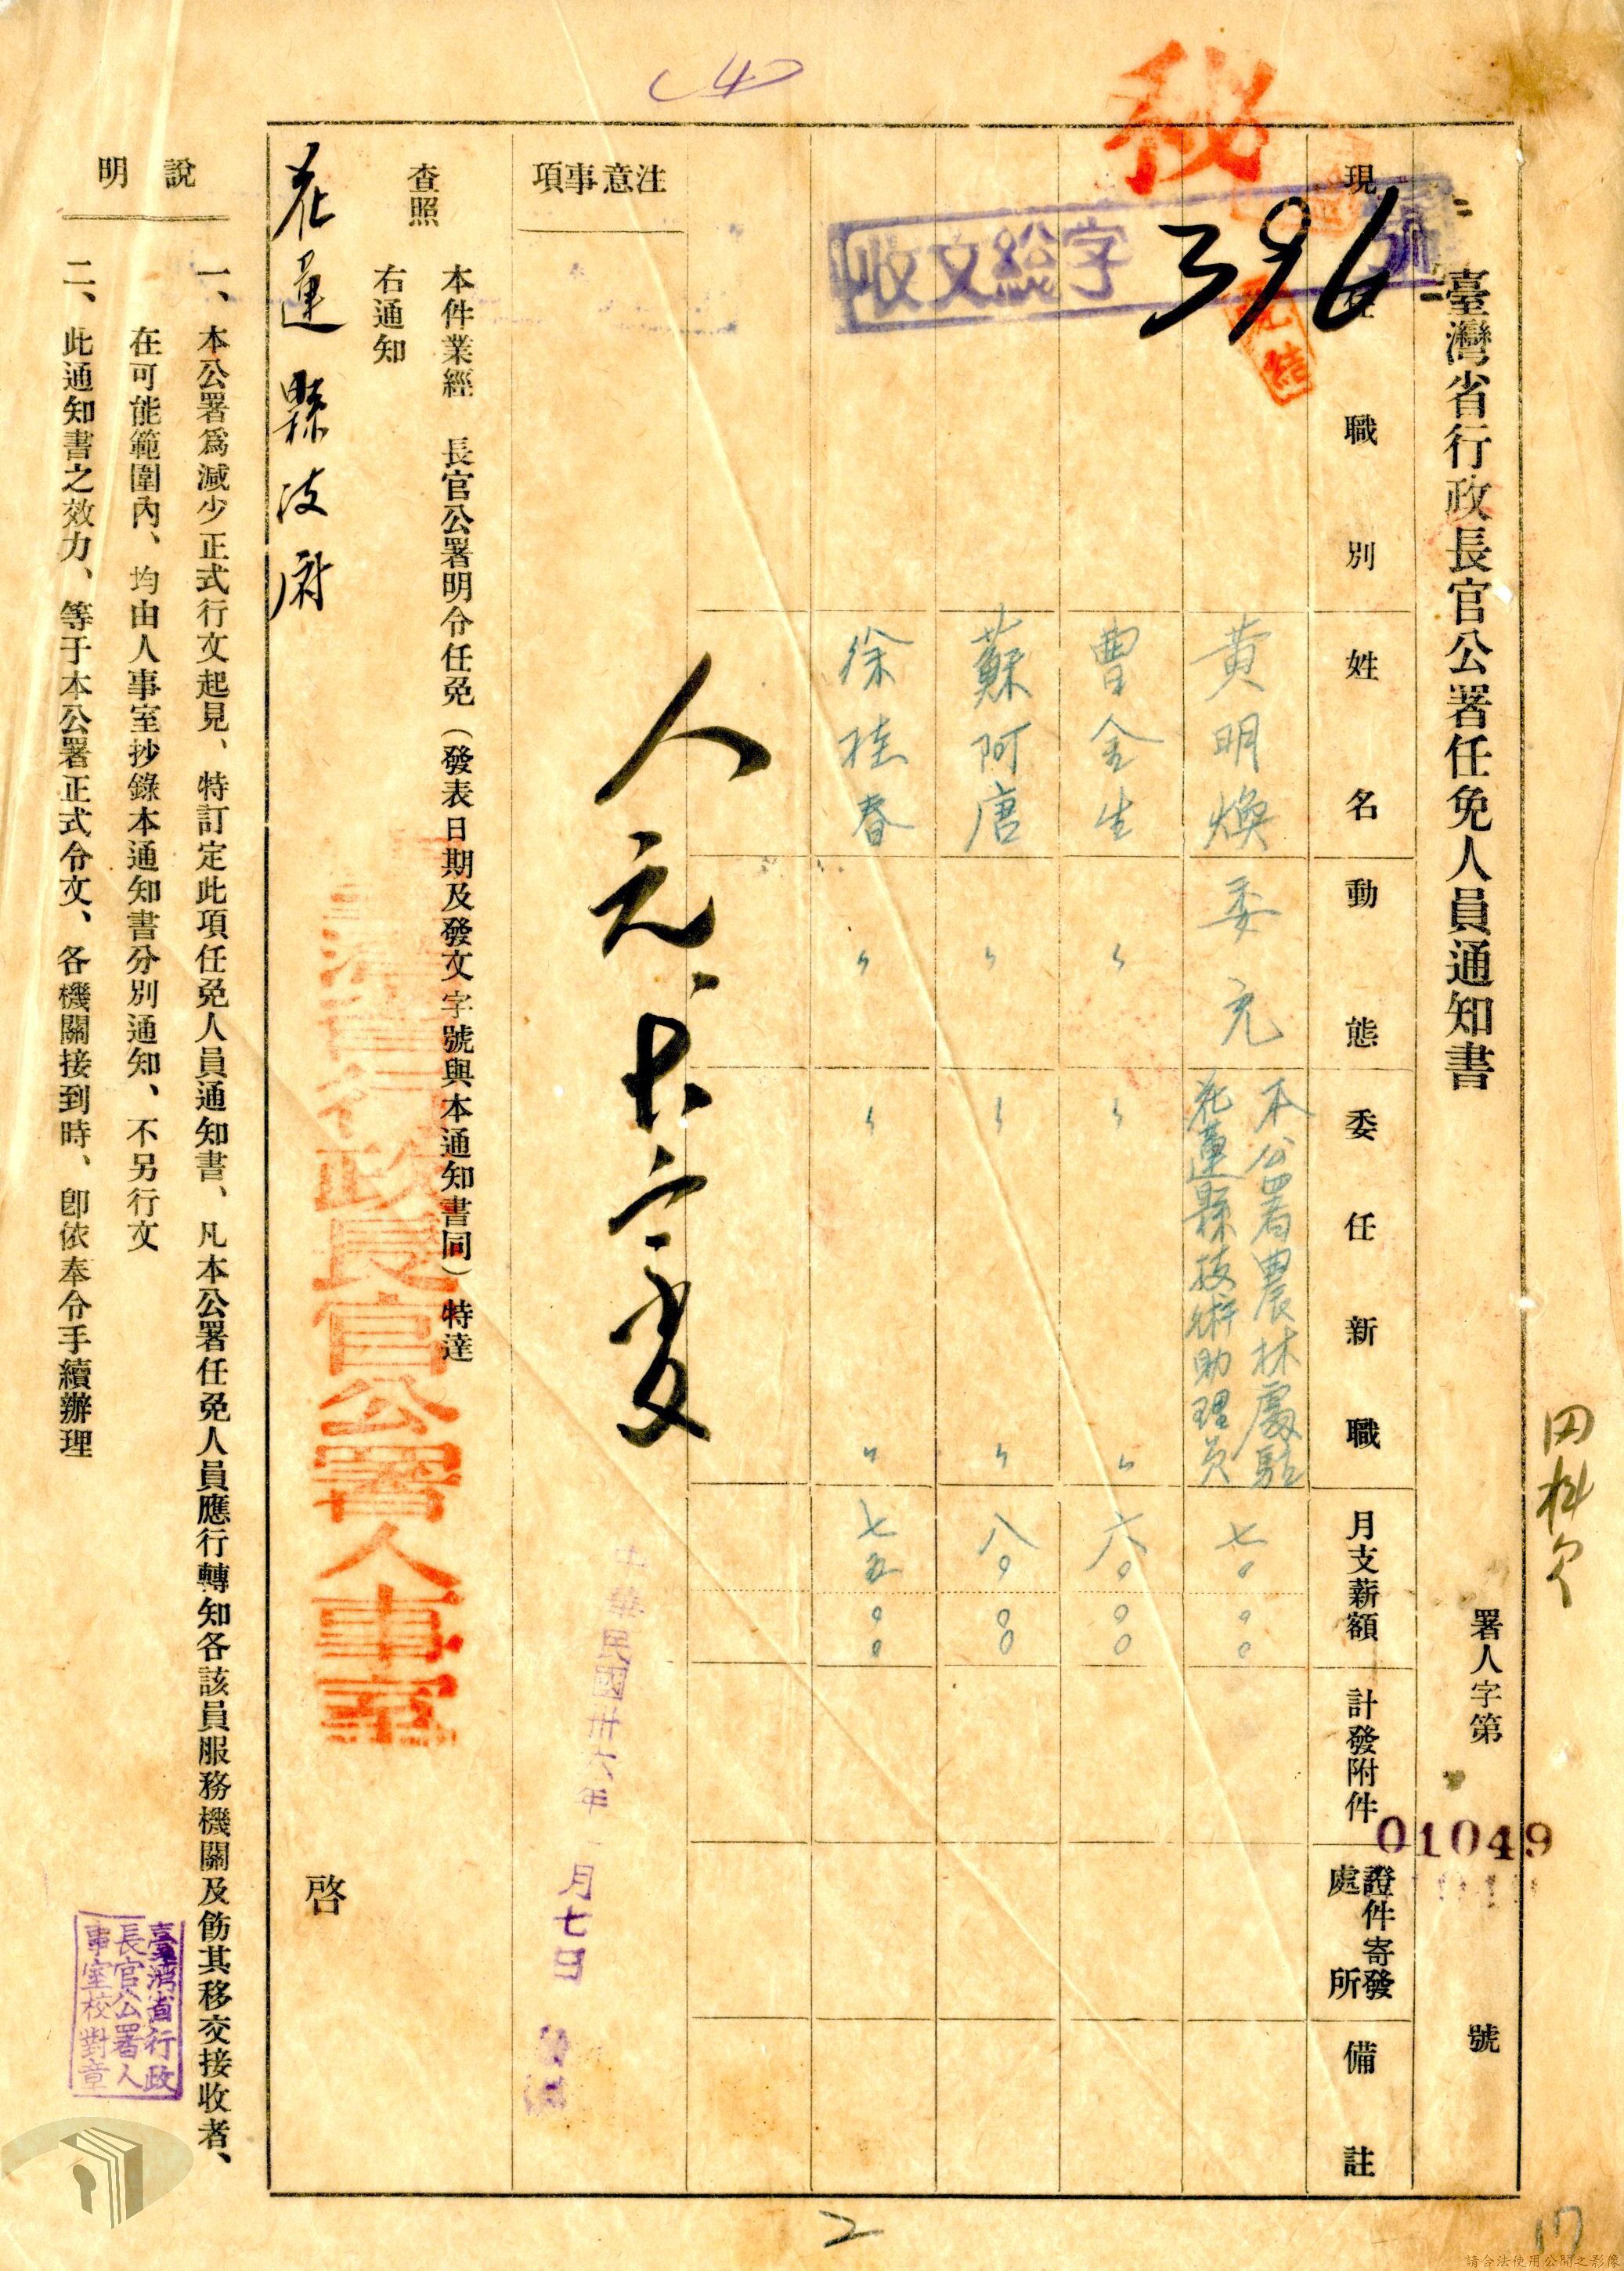 (4)
秘
收文總字
396
號
臺灣省行政長官公署任免人員通知書
署人字第
01049
號
現任職別
姓名
動態
委任新職
月支薪額
計發附件
證件寄發
處所
備註
黃明煥
委充
本公署農林處駐
花蓮縣技術助理員
七〇
〇〇
曹金生
〃
〃
〃
六〇
〇〇
蘇阿唐
〃
〃
〃
八〇
〇〇
徐桂春
〃
〃
〃
七五
〇〇
注意事項
中華民國卅六年一月七日
本件業經 長官公署明令任免(發表日期及發文字號與本通知書同)特達
查照
右通知
花蓮縣政府
臺灣省行政長官公署人事室
啓
說明
一、本公署爲減少正式行文起見、特訂定此項任免人員通知書、凡本公署任免人員應行轉知各該員服務機關及飭其移交接收者、
在可能範圍內、均由人事室抄錄本通知書分別通知、不另行文
二、此通知書之效力、等于本公署正式令文、各機關接到時、卽依奉令手續辦理
臺灣省行政
長官公署人
事室校對章
2
17
請合法使用公開之影像